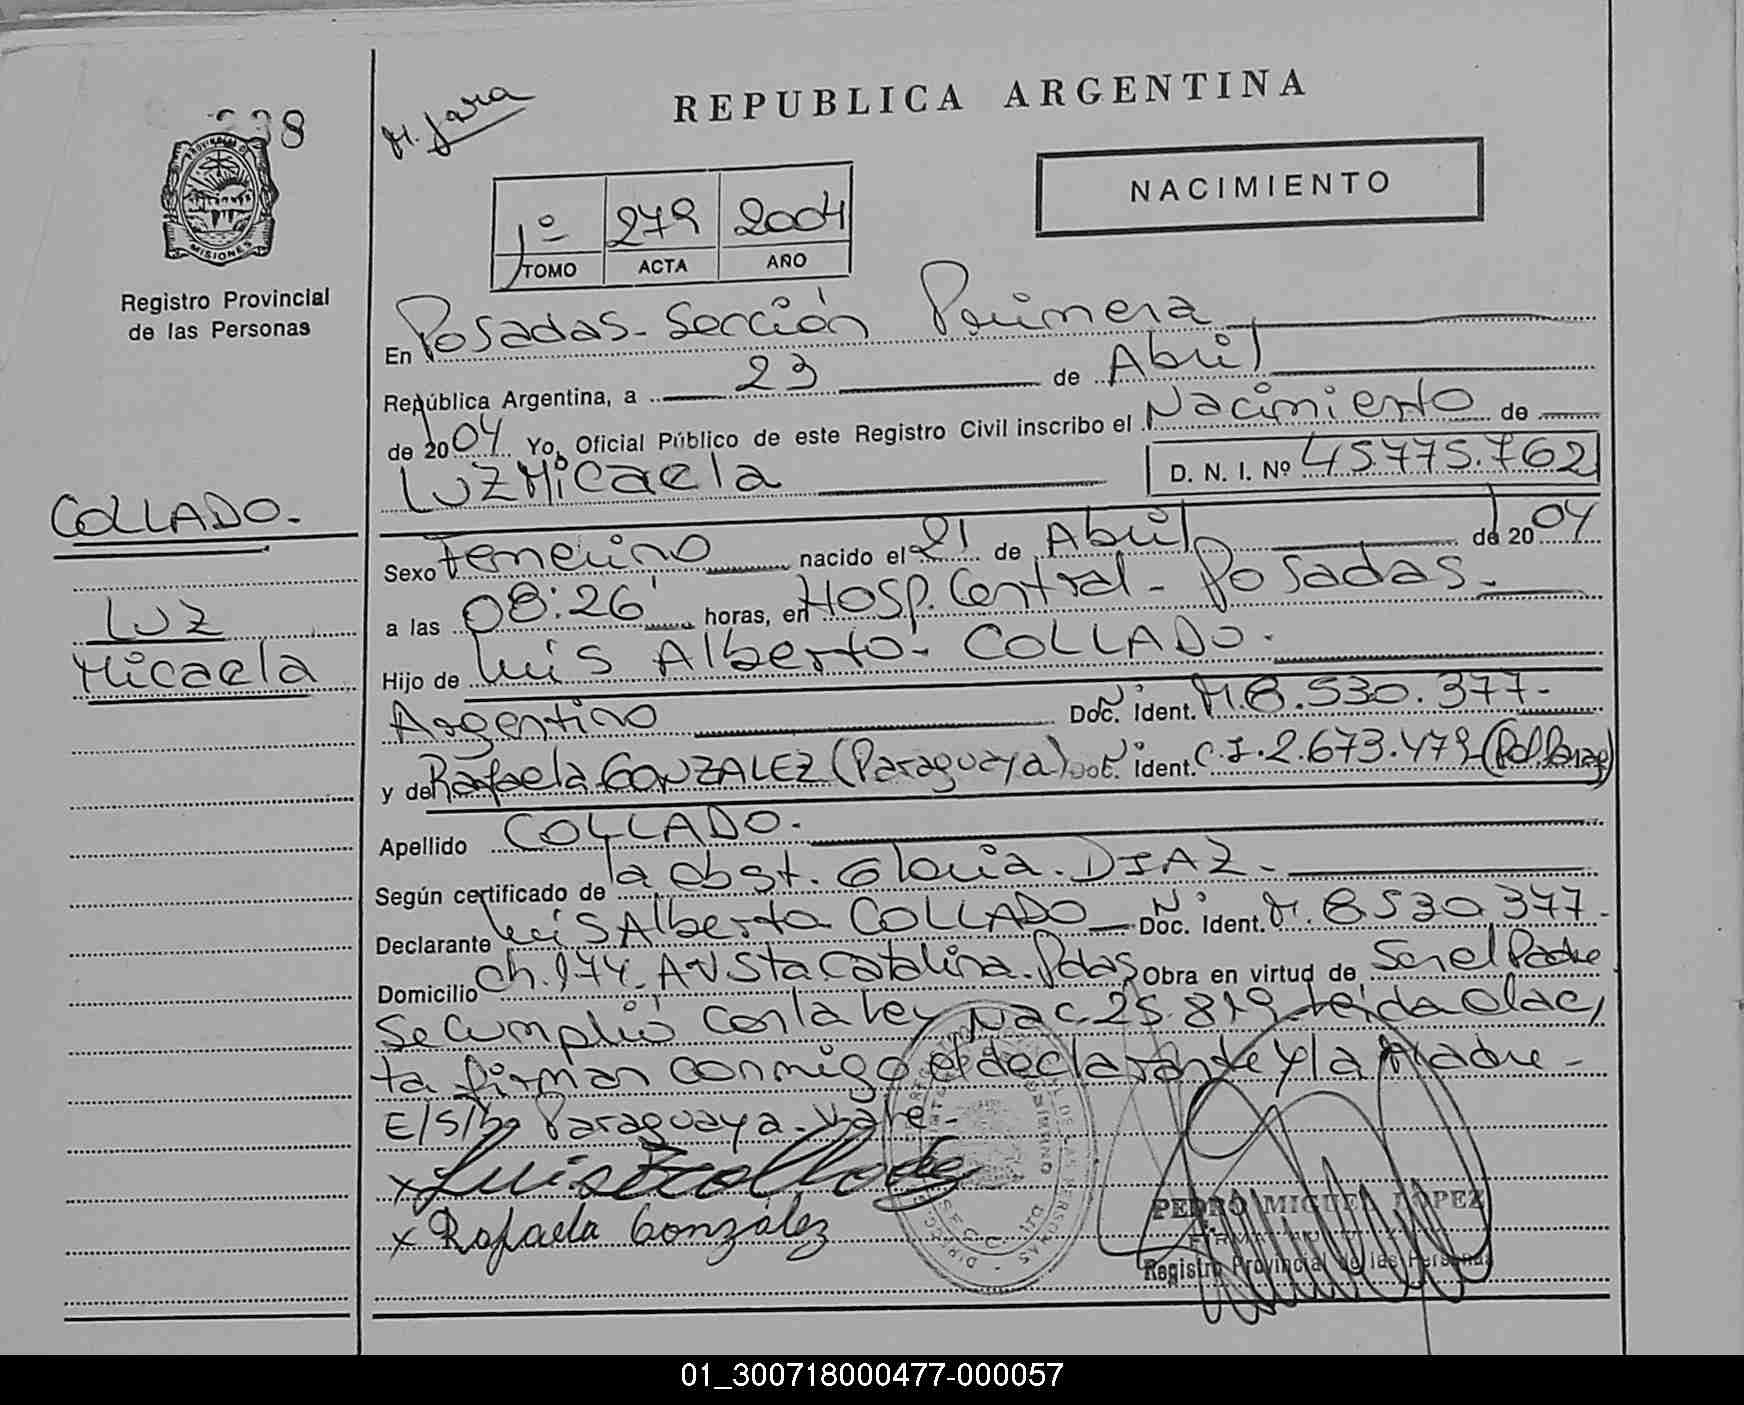 M. Jara
REPUBLICA ARGENTINA
NACIMIENTO
1º 279 2004
TOMO ACTA AÑO
PROVINCIA DE MISIONES
Registro Provincial
de las Personas
COLLADO.
Luz
Micaela
En Posadas - Sección Primera
República Argentina, a 23 de Abril
de 2004 Yo, Oficial Público de este Registro Civil inscribo el Nacimiento de
Luz Micaela D. N. I. Nº 45775.762
Sexo Femenino nacido el 21 de Abril de 2004
a las 08:26' horas, en Hosp. Central - Posadas.
Hijo de Luis Alberto - COLLADO.
Argentino Doc. Nº Ident. M. 8.530.377-
y de Rafaela GONZALEZ (Paraguaya) Doc. Nº Ident. C.I. 2.673.479 (Pol. Parag)
Apellido COLLADO.
Según certificado de la Obst. Gloria. DIAZ -
Declarante Luis Alberto COLLADO - Doc. Nº Ident. M. 8530.377.
Domicilio Ch. 174. AV Sta Catalina. Pdas Obra en virtud de Ser el Padre
Se cumplió con la Ley Nac. 25.819 - Leida el ac,
ta firman conmigo el declarante y la Madre -
E/S/bo Paraguaya - Vale -
x Luis Collado
x Rafaela González
PEDRO MIGUEL LOPEZ
Registro Provincial de las Personas
01_300718000477-000057